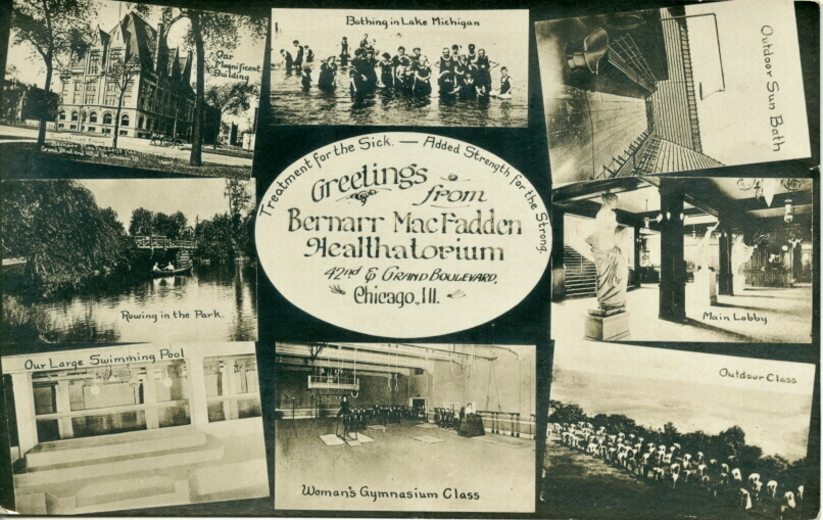 Our
Magnificent
Building
Bathing in Lake Michigan
Outdoor Sun Bath
Treatment for the Sick. — Added Strength for the Strong.
Greetings from
Bernarr MacFadden
Healthatorium
42nd & GRAND BOULEVARD,
Chicago, Ill.
Rowing in the Park.
Main Lobby
Our Large Swimming Pool
Woman's Gymnasium Class
Outdoor Class